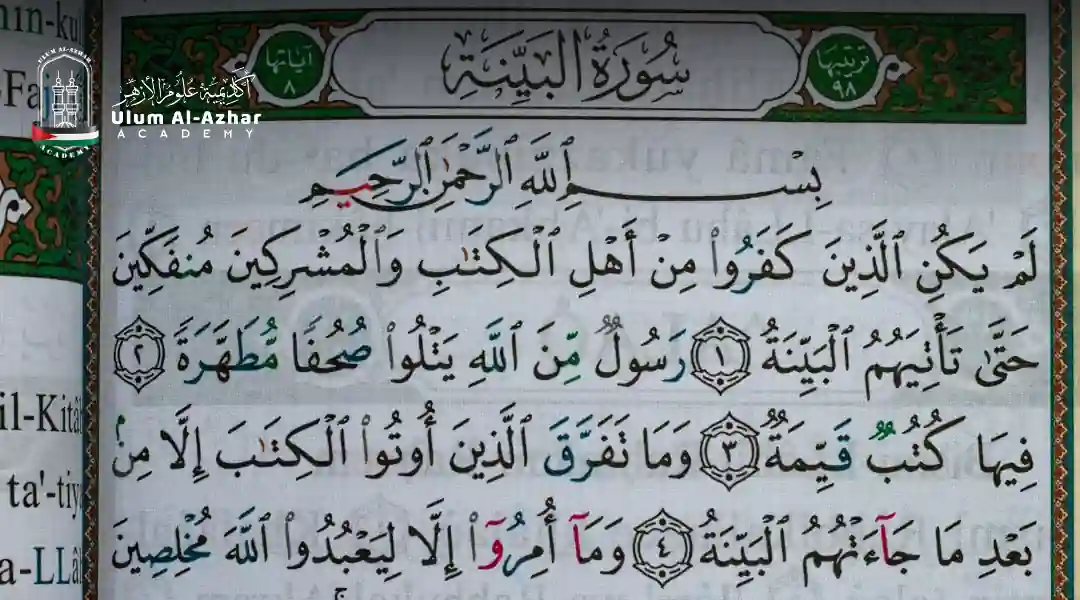 ترتيبها ٩٨
سُورَةُ الْبَيِّنَةِ
آياتها ٨
بِسْمِ ٱللَّهِ ٱلرَّحْمَٰنِ ٱلرَّحِيمِ
لَمْ يَكُنِ ٱلَّذِينَ كَفَرُوا۟ مِنْ أَهْلِ ٱلْكِتَٰبِ وَٱلْمُشْرِكِينَ مُنفَكِّينَ
حَتَّىٰ تَأْتِيَهُمُ ٱلْبَيِّنَةُ ١ رَسُولٌ مِّنَ ٱللَّهِ يَتْلُوا۟ صُحُفًا مُّطَهَّرَةً ٢
فِيهَا كُتُبٌ قَيِّمَةٌ ٣ وَمَا تَفَرَّقَ ٱلَّذِينَ أُوتُوا۟ ٱلْكِتَٰبَ إِلَّا مِنۢ
بَعْدِ مَا جَآءَتْهُمُ ٱلْبَيِّنَةُ ٤ وَمَآ أُمِرُوٓا۟ إِلَّا لِيَعْبُدُوا۟ ٱللَّهَ مُخْلِصِينَ
أكاديمية علوم الأزهر
Ulum Al-Azhar
ACADEMY
ULUM AL-AZHAR
ACADEMY
il-Kitâ
ta'-tiy
a-LLâ